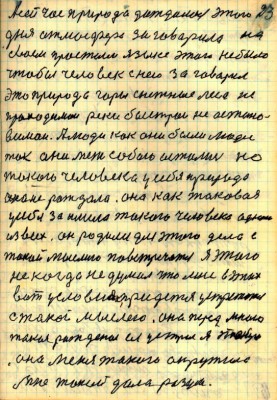 А сейчас природа дождалась этого 23
дня атмосфера заговорила на
своем простом языке этого не было
чтобы человек с нею заговорил
это природа горы снежные леса не
проходимые реки быстрые не остано-
вимые. А люди как они были люди
так они меж собою и жили но
такого человека у себя природа
она не рождала. она как таковая
у себя заимела такого человека одного
из всех. он родился для этого дела с
такой мыслею повстречался я этого
некогда не думал что мне в этих
вот условиях придется устретится
с такой мыслею. она перед много
таких рожденая ея устретил я
. она меня такого окружила
мне такой дала разум.